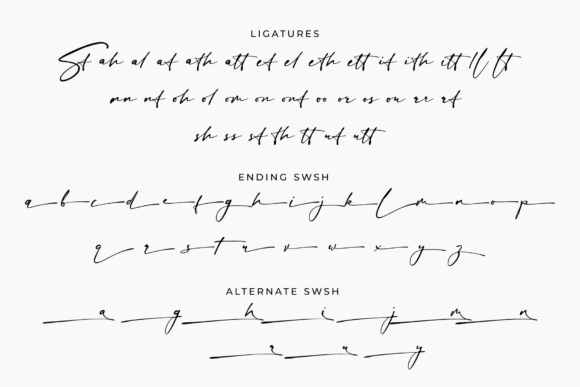 LIGATURES
St ah al at ath att et el eth ett it ith itt ll ft
nn nt oh ol om on ont oo or os ou rr rt
sh ss st th tt ut utt
ENDING SWSH
a b c d e f g h i j k l m n o p
q r s t u v w x y z
ALTERNATE SWSH
a g h i j m n
r u y